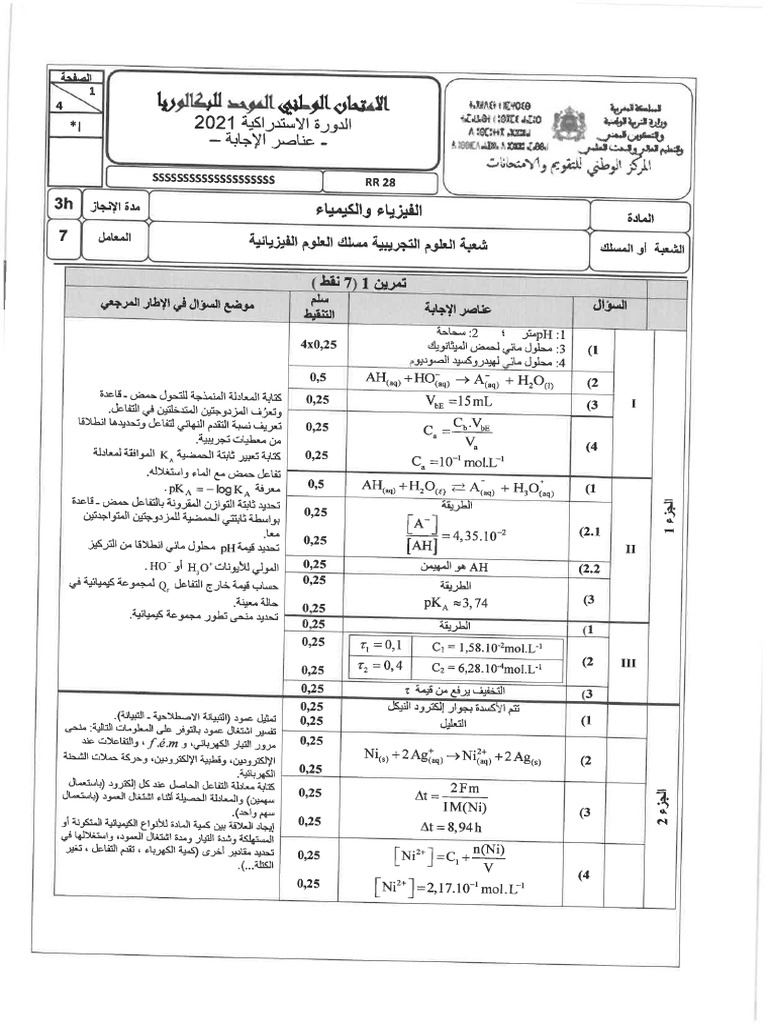 الصفحة
1
4
*I
الامتحان الوطني الموحد للبكالوريا
الدورة الاستدراكية 2021
- عناصر الإجابة –
SSSSSSSSSSSSSSSSSSSS
RR 28
المملكة المغربية
وزارة التربية الوطنية
والتكوين المهني
والتعليم العالي والبحث العلمي
المركز الوطني للتقويم والامتحانات
المادة
الفيزياء والكيمياء
مدة الإنجاز
3h
الشعبة أو المسلك
شعبة العلوم التجريبية مسلك العلوم الفيزيائية
المعامل
7
تمرين 1 (7 نقط)
السؤال
عناصر الإجابة
سلم التنقيط
موضع السؤال في الإطار المرجعي
الجزء 1
I
(1
1: pHمتر ؛ 2: سحاحة
3: محلول مائي لحمض الميثانويك
4: محلول مائي لهيدروكسيد الصوديوم
4x0,25
(2
AH(aq) + HO⁻(aq) → A⁻(aq) + H₂O(l)
0,5
(3
V_bE = 15 mL
0,25
(4
C_a = C_b.V_bE / V_a
0,25
C_a = 10⁻¹ mol.L⁻¹
0,25
II
(1
AH(aq) + H₂O(ℓ) ⇌ A⁻(aq) + H₃O⁺(aq)
0,5
(2.1
الطريقة
0,25
[A⁻] / [AH] = 4,35.10⁻²
0,25
(2.2
AH هو المهيمن
0,25
(3
الطريقة
0,25
pK_A ≈ 3,74
0,25
III
(1
الطريقة
0,25
(2
τ₁ = 0,1 C₁ = 1,58.10⁻² mol.L⁻¹
0,25
τ₂ = 0,4 C₂ = 6,28.10⁻⁴ mol.L⁻¹
0,25
(3
التخفيف يرفع من قيمة τ
0,25
كتابة المعادلة المنمذجة للتحول حمض - قاعدة
وتعرُّف المزدوجتين المتدخلتين في التفاعل.
تعريف نسبة التقدم النهائي لتفاعل وتحديدها انطلاقا
من معطيات تجريبية.
كتابة تعبير ثابتة الحمضية K_A الموافقة لمعادلة
تفاعل حمض مع الماء واستغلاله.
معرفة pK_A = −log K_A .
تحديد ثابتة التوازن المقرونة بالتفاعل حمض - قاعدة
بواسطة ثابتتي الحمضية للمزدوجتين المتواجدتين
معا.
تحديد قيمة pH محلول مائي انطلاقا من التركيز
المولي للأيونات H₃O⁺ أو HO⁻ .
حساب قيمة خارج التفاعل Q_r لمجموعة كيميائية في
حالة معينة.
تحديد منحى تطور مجموعة كيميائية.
الجزء 2
(1
تتم الأكسدة بجوار إلكترود النيكل
0,25
التعليل
0,25
(2
Ni(s) + 2Ag⁺(aq) → Ni²⁺(aq) + 2Ag(s)
0,25
0,25
(3
Δt = 2Fm / IM(Ni)
0,25
Δt = 8,94 h
0,25
(4
[Ni²⁺] = C₁ + n(Ni) / V
0,25
[Ni²⁺] = 2,17.10⁻¹ mol.L⁻¹
0,25
تمثيل عمود (التبيانة الاصطلاحية - التبيانة).
تفسير اشتغال عمود بالتوفر على المعلومات التالية: منحى
مرور التيار الكهربائي، و f.é.m ، والتفاعلات عند
الإلكترودين، وقطبية الإلكترودين، وحركة حملات الشحنة
الكهربائية.
كتابة معادلة التفاعل الحاصل عند كل إلكترود (باستعمال
سهمين) والمعادلة الحصيلة أثناء اشتغال العمود (باستعمال
سهم واحد).
إيجاد العلاقة بين كمية المادة للأنواع الكيميائية المتكونة أو
المستهلكة وشدة التيار ومدة اشتغال العمود، واستغلالها في
تحديد مقادير أخرى (كمية الكهرباء ، تقدم التفاعل ، تغير
الكتلة...).